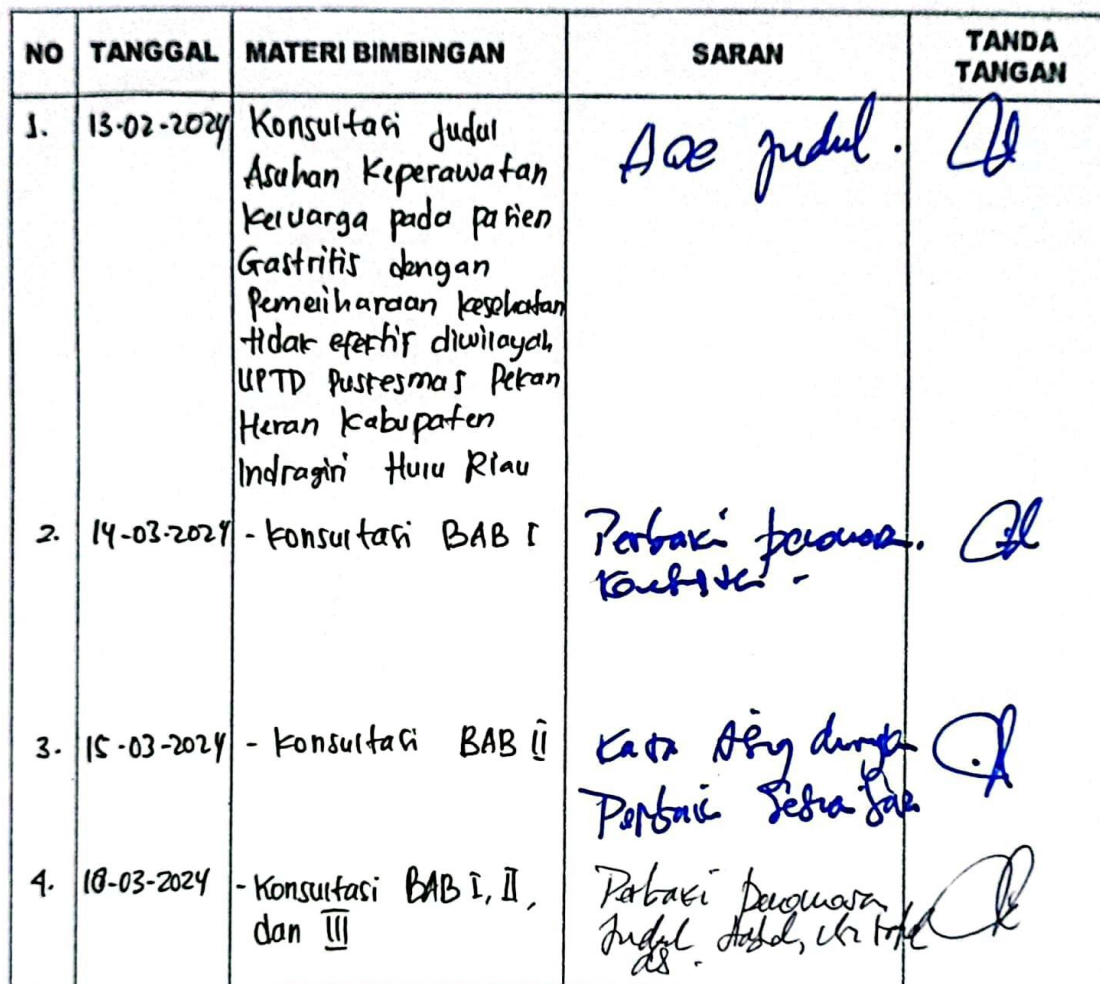 NO TANGGAL MATERI BIMBINGAN SARAN TANDA TANGAN
1. 13-02-2024 Konsultasi Judul ACC judul.
Asuhan Keperawatan
Keluarga pada pasien
Gastritis dengan
Pemeliharaan kesehatan
tidak efektif diwilayah
UPTD Puskesmas Pekan
Heran Kabupaten
Indragiri Hulu Riau
2. 14-03-2024 - Konsultasi BAB I Perbaiki
3. 15-03-2024 - Konsultasi BAB II Kata Asing
Perbaiki
4. 18-03-2024 - Konsultasi BAB I, II, Perbaiki
dan III Judul